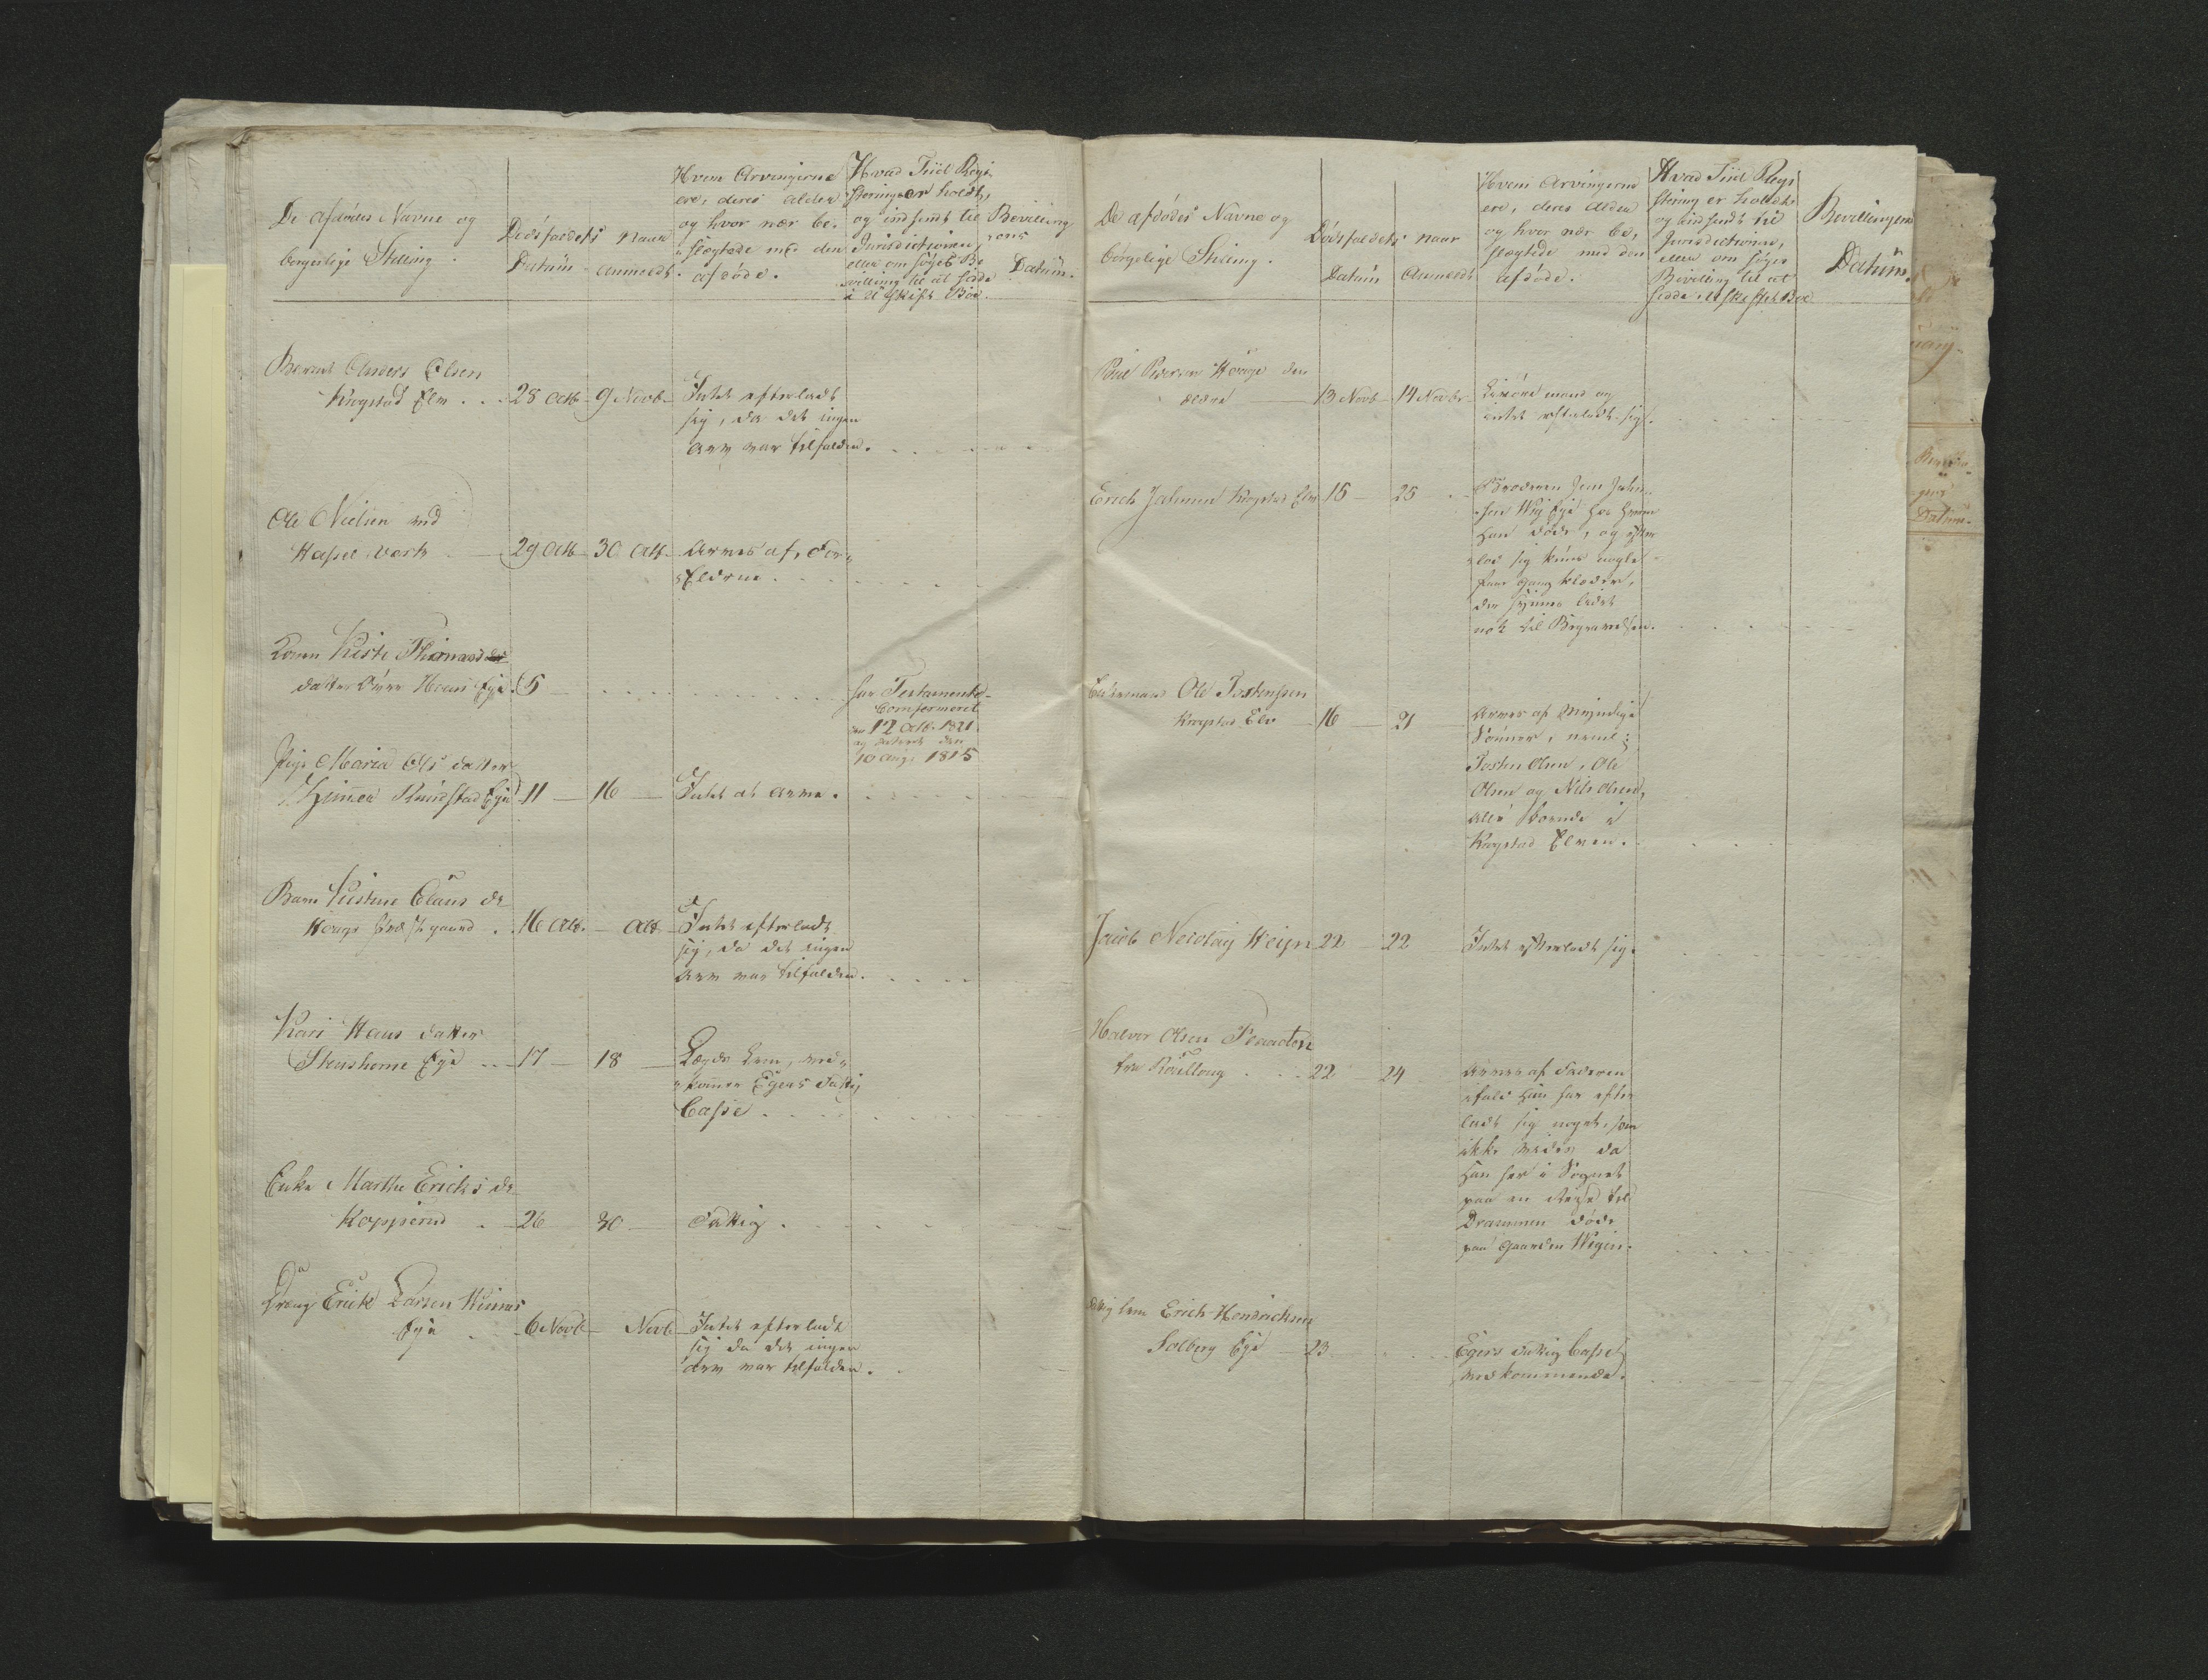 De afdödes Navne og
borgerlige Stilling.
Dödsfaldets
Datum
Naar
Anmeldt.
Hvem Arvingerne
ere, deres Alder
og hvor nær be-
slægtede med den
afdöde.
Hvad Tiid Regi-
stering er holdt,
og indsendt til
Jurisdictionen,
eller om söges Be
villing til at sidde
i Uskift Boe.
Bevilling
ens
Datum.
Barnet Anders Olsen
Krogstad Elv . . . 28 Octb 9 Novb. Intet efterladt
sig, da det ingen
Arv var tilfalden.
Ole Nielsen ved
Hassel Verk 29 Octb 30 Oct. Arves af For-
ældrene.
Konen Kisti Thomas
datter Övre Hoens Eye. 5
har Testamente
Confirmeret
den 12 Octb. 1821.
og dateret den
10 Aug: 1815
Pige Maria Ols datter
Ruudstad Eye 11 16 Intet at Arve.
Barn Kistine Claus dr
Houge Præstgaard . . 16 Octb. Octb. Intet efterladt
sig, da det ingen
Arv var tilfalden.
Kari Hans datter
Steensholme Eye 17 18 Lægds Lem, ved-
kommer Egers Fattig
Casse.
Enke Marthe Ericks dr
Kopperud 26 30 Fattig.
Dreng Erick Larsen
Eye 6 Novb Novb Intet efterladt
sig da det ingen
Arv var tilfalden.
De afdödes Navne og
borgelige Stilling.
Dödsfaldets
Datum
Naar
Anmeldt
Hvem Arvingerne
ere, deres Alder
og hvor nær be,
slægtede med den
afdöde.
Hvad Tiid Regi
stering er holdt
og indsendt til
Jurisdictionen,
eller om söges
Bevilling til at
sidde i Uskiftet Boe
Bevillingens
Datum.
Poul Pedersen Houge den
ældre 13 Novb 14 Novbr. mand og
intet efterladt sig.
Erich Jahnsen Krogstad Elv 15 25 Broderen Jens Jahn-
sen Wiig Eye hos hvem
han döde, og efter
lod sig kuns nogle
faae Gang klæder,
der synes lidet
nok til Begravelsen.
Ole Tostensen
Krogstad Elv 16 21 Arves af Myndige
Sönner, neml:
Tosten Olsen, Ole
Olsen og Nils Olsen,
alle boende i
Krogstad Elven.
Jacob Nicolay Heyn 22 22 Intet efterladt sig.
Halvor Olsen
fra Rolloug 22 24 Arves af Faderen
ifald han har efter
ladt sig noget, som
ikke vides da
han her i Sognet
paa en Reyse til
Drammen döde
paa Gaarden Wegen.
Fattig Lem Erich Hendrichsen
Solberg Eye 23 Egers Fattig Casse
vedkommende.
Datum.